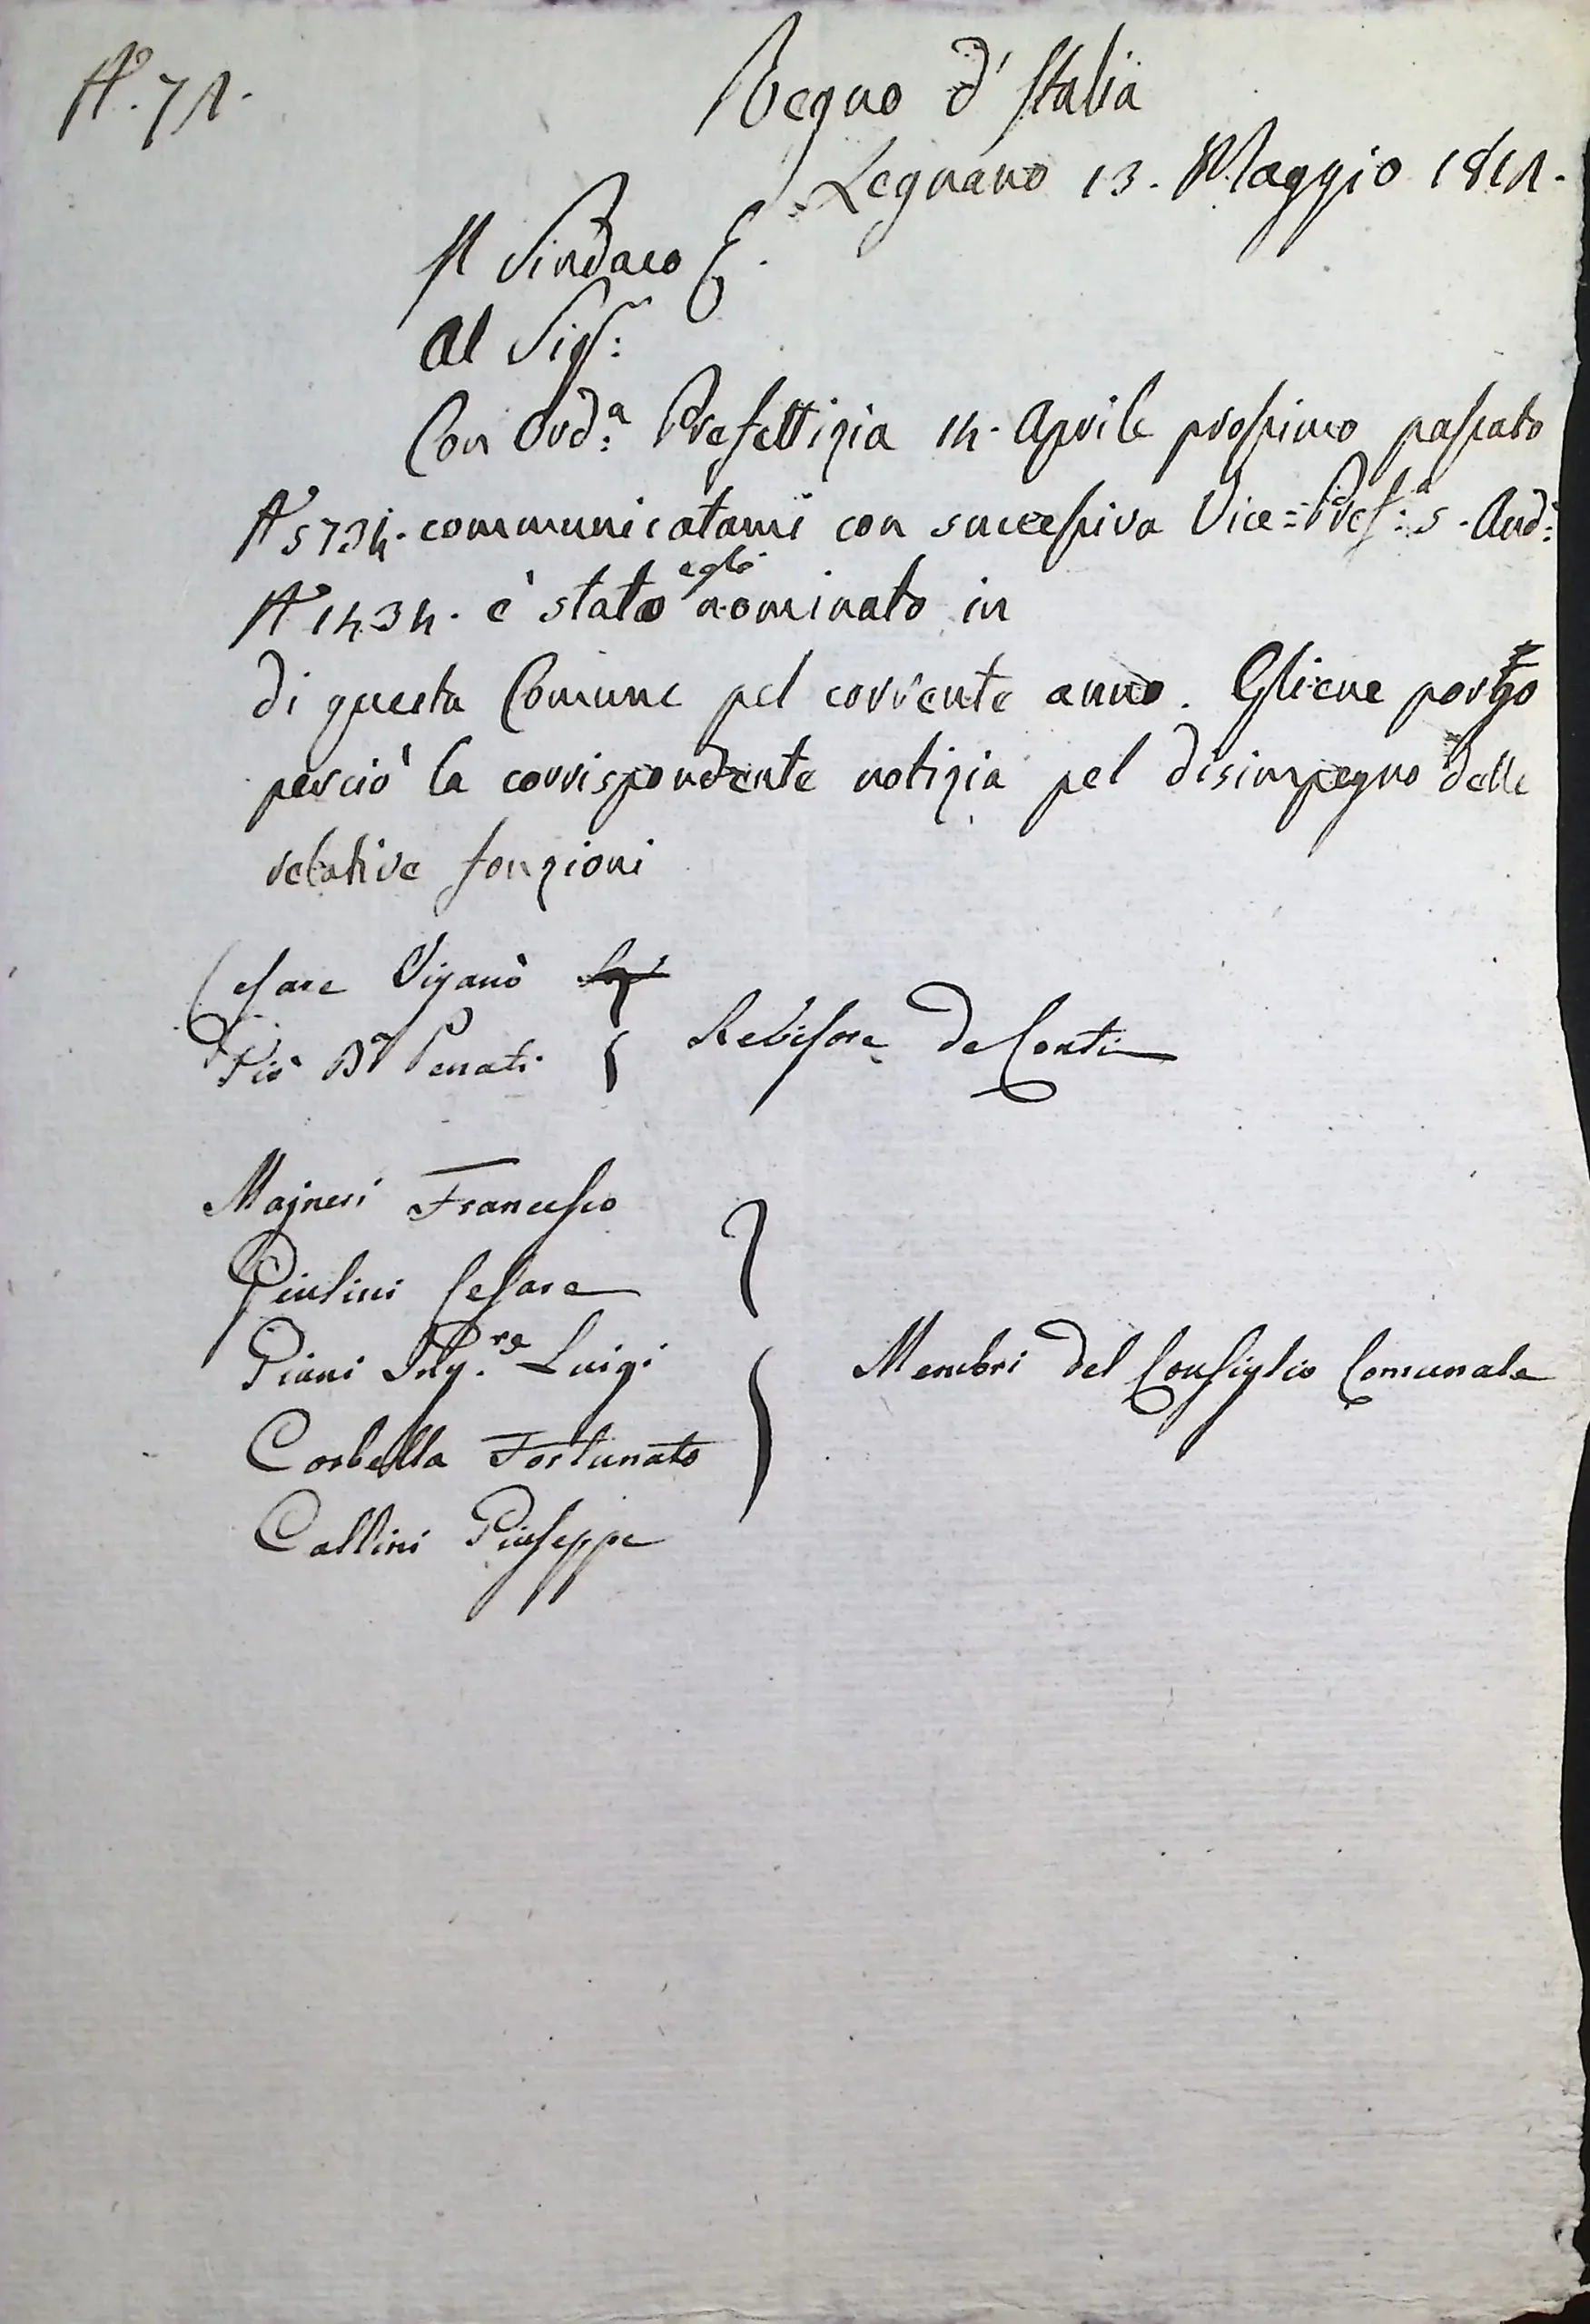 N°. 71.
Regno d'Italia
Legnano 13. Maggio 1811.
Il Sindaco
Al Sigr:
Con Ord:a Prefettizia 14. Aprile prossimo passato
N° 5734. communicatami con successiva Vice=Pref:a 5. And:
N° 1434. è stato egli nominato in
di questa Comune pel corrente anno. Gliene porgo
perciò la corrispondente notizia pel disimpegno delle
relative fonzioni
Cesare Viganò
Gio Ba Penati
Revisore de Conti
Majneri Francesco
Giulini Cesare
Piani Ing.re Luigi
Membri del Consiglio Comunale
Corbella Fortunato
Callini Giuseppe